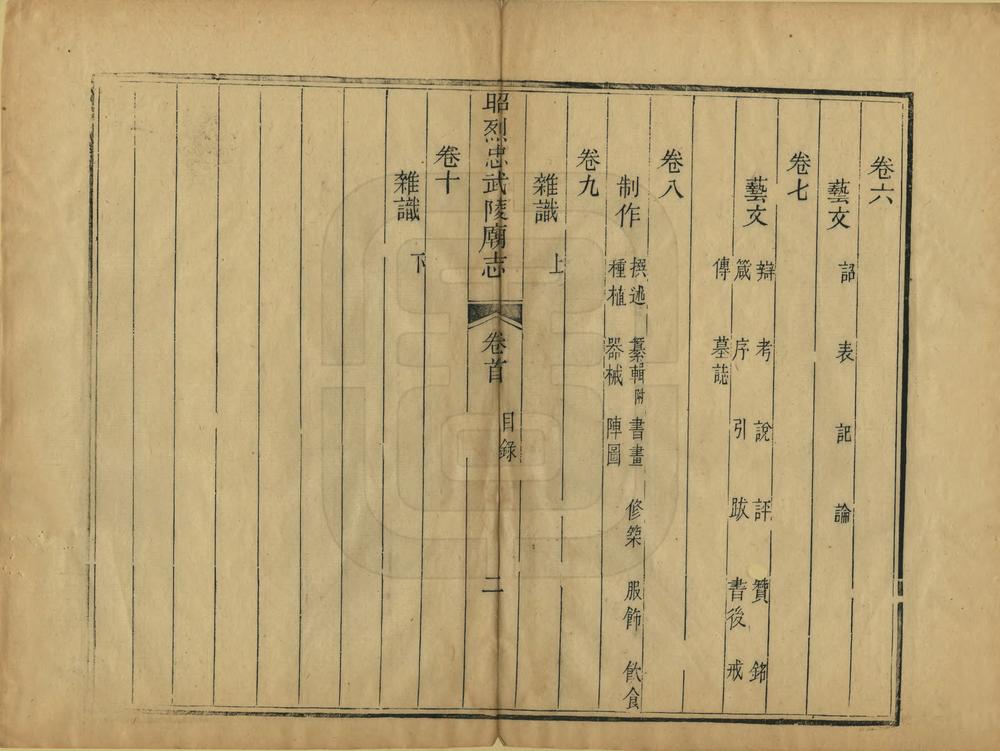 卷六
藝文 詔 表 記 論
卷七
藝文 辯 考 說 評 贊 銘
箴 序 引 跋 書後 戒
傳 墓誌
卷八
制作 撰述 纂輯附 書畫 修築 服飾 飲食
種植 器械 陣圖
卷九
雜識 上
昭烈忠武陵廟志 卷首 目錄 二
卷十
雜識 下